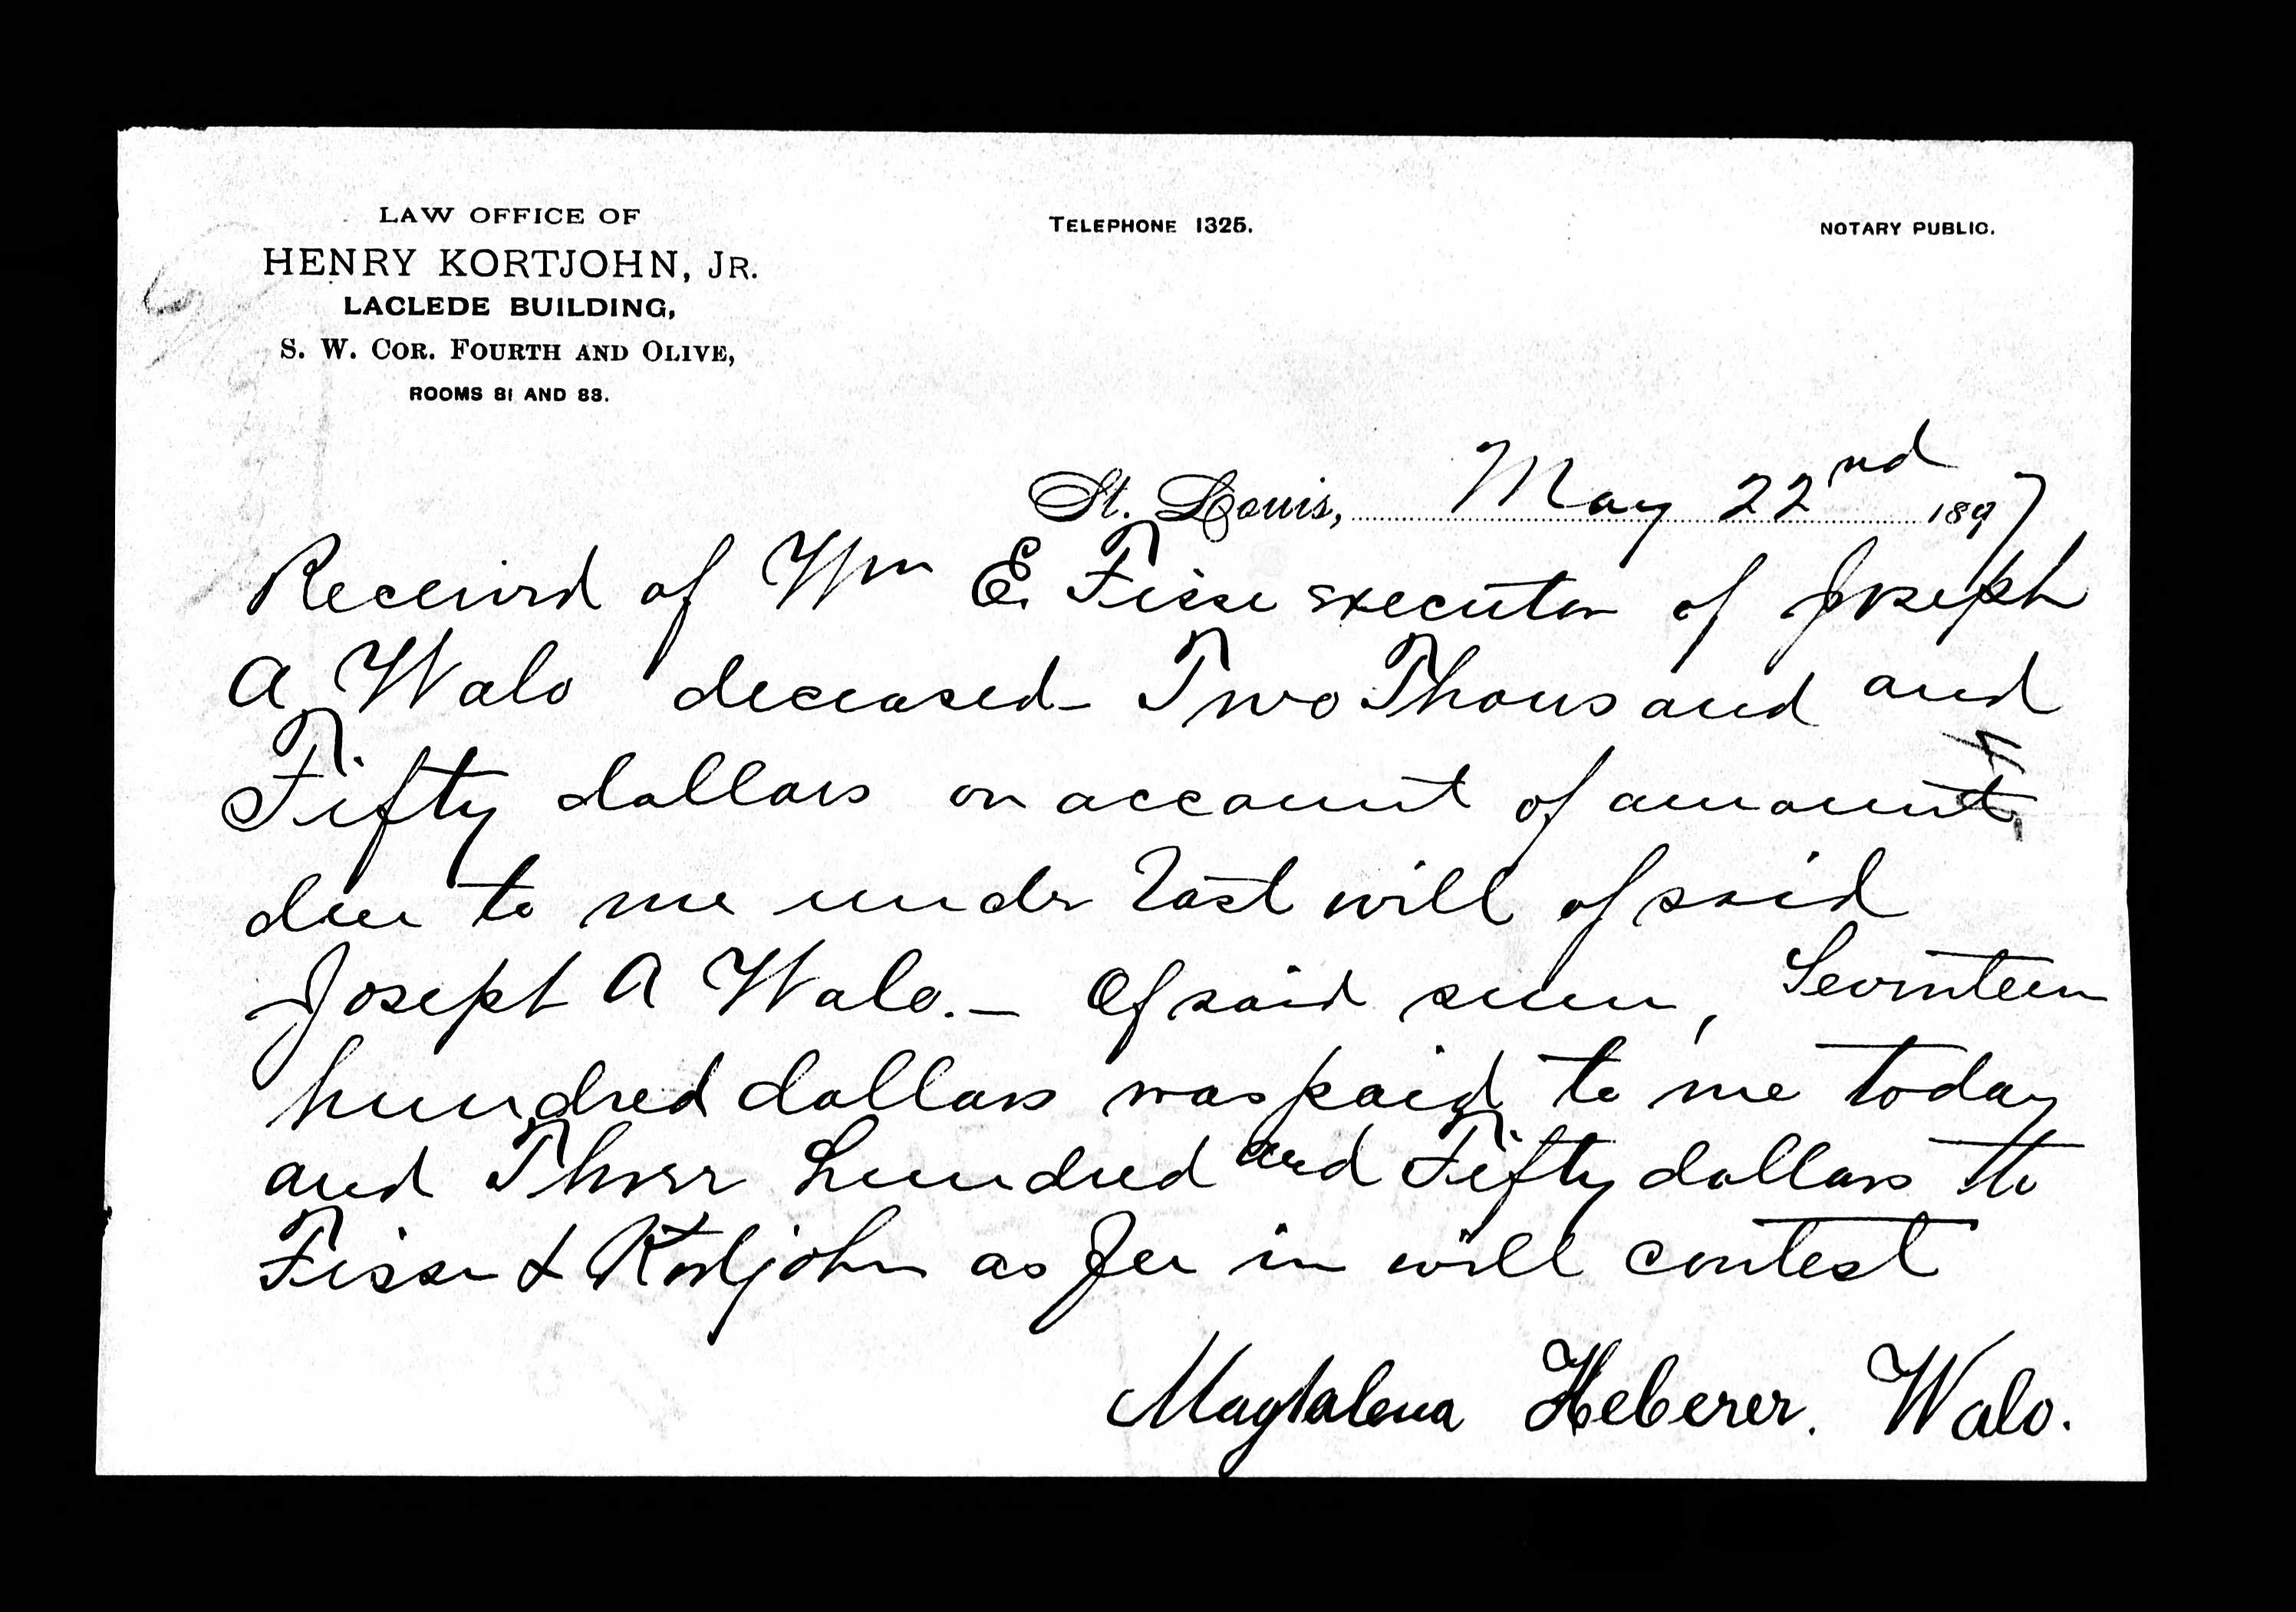 LAW OFFICE OF
HENRY KORTJOHN, JR.
LACLEDE BUILDING,
S. W. COR. FOURTH AND OLIVE,
ROOMS 81 AND 83.
TELEPHONE 1325.
NOTARY PUBLIC.
St. Louis, May 22nd 1897
Received of Wm E. Fisse executor of Joseph
A Walo deceased - Two Thousand and
Fifty dollars on account of amount
due to me under last will of said
Joseph A Walo. - Of said sum, Seventeen
hundred dollars was paid to me today
and Three hundred and Fifty dollars to
Fisse & Kortjohn as fee in will contest
Magdalena Heberer. Walo.